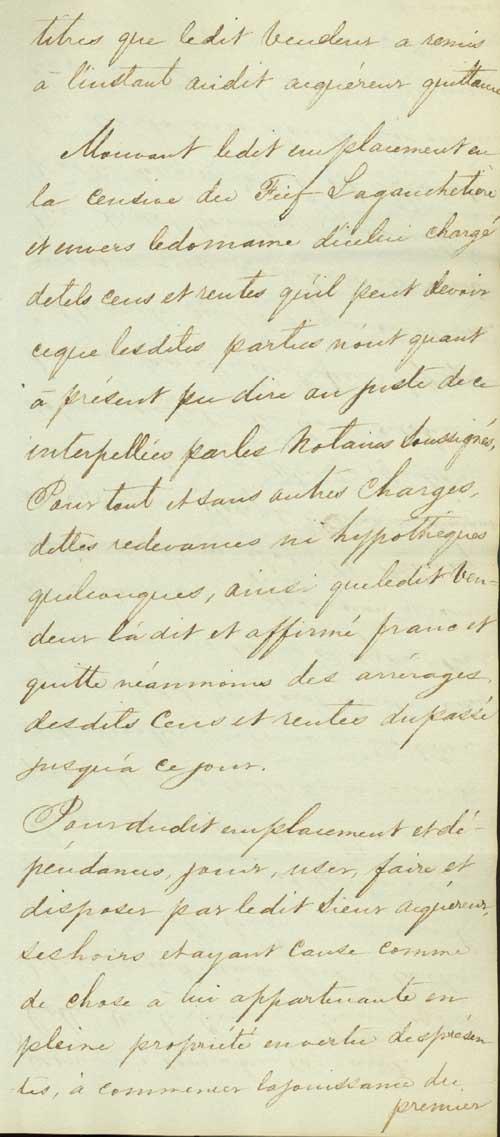 titres que ledit Vendeur a remis
à l'instant audit acquéreur quittance
Mouvant ledit emplacement en
la censive du Fief Lagauchetière
et envers le domaine d'icelui chargé
de tels cens et rentes qu'il peut devoir
ce que lesdites parties n'ont quant
à présent pu dire au juste de ce
interpellées par les Notaires Soussignés,
Pour tout et sans autres charges,
dettes redevances ni hypothèques
quelconques, ainsi que ledit Ven-
deur l'a dit et affirmé franc et
quitte néanmoins des arrérages
desdits Cens et rentes du passé
jusqu'à ce jour.
Pour dudit emplacement et dé-
pendances, jouir, user, faire et
disposer par ledit Sieur acquéreur,
ses hoirs et ayant cause comme
de chose a lui appartenante en
pleine propriété en vertu des présen-
tes, à commencer la jouissance du
premier